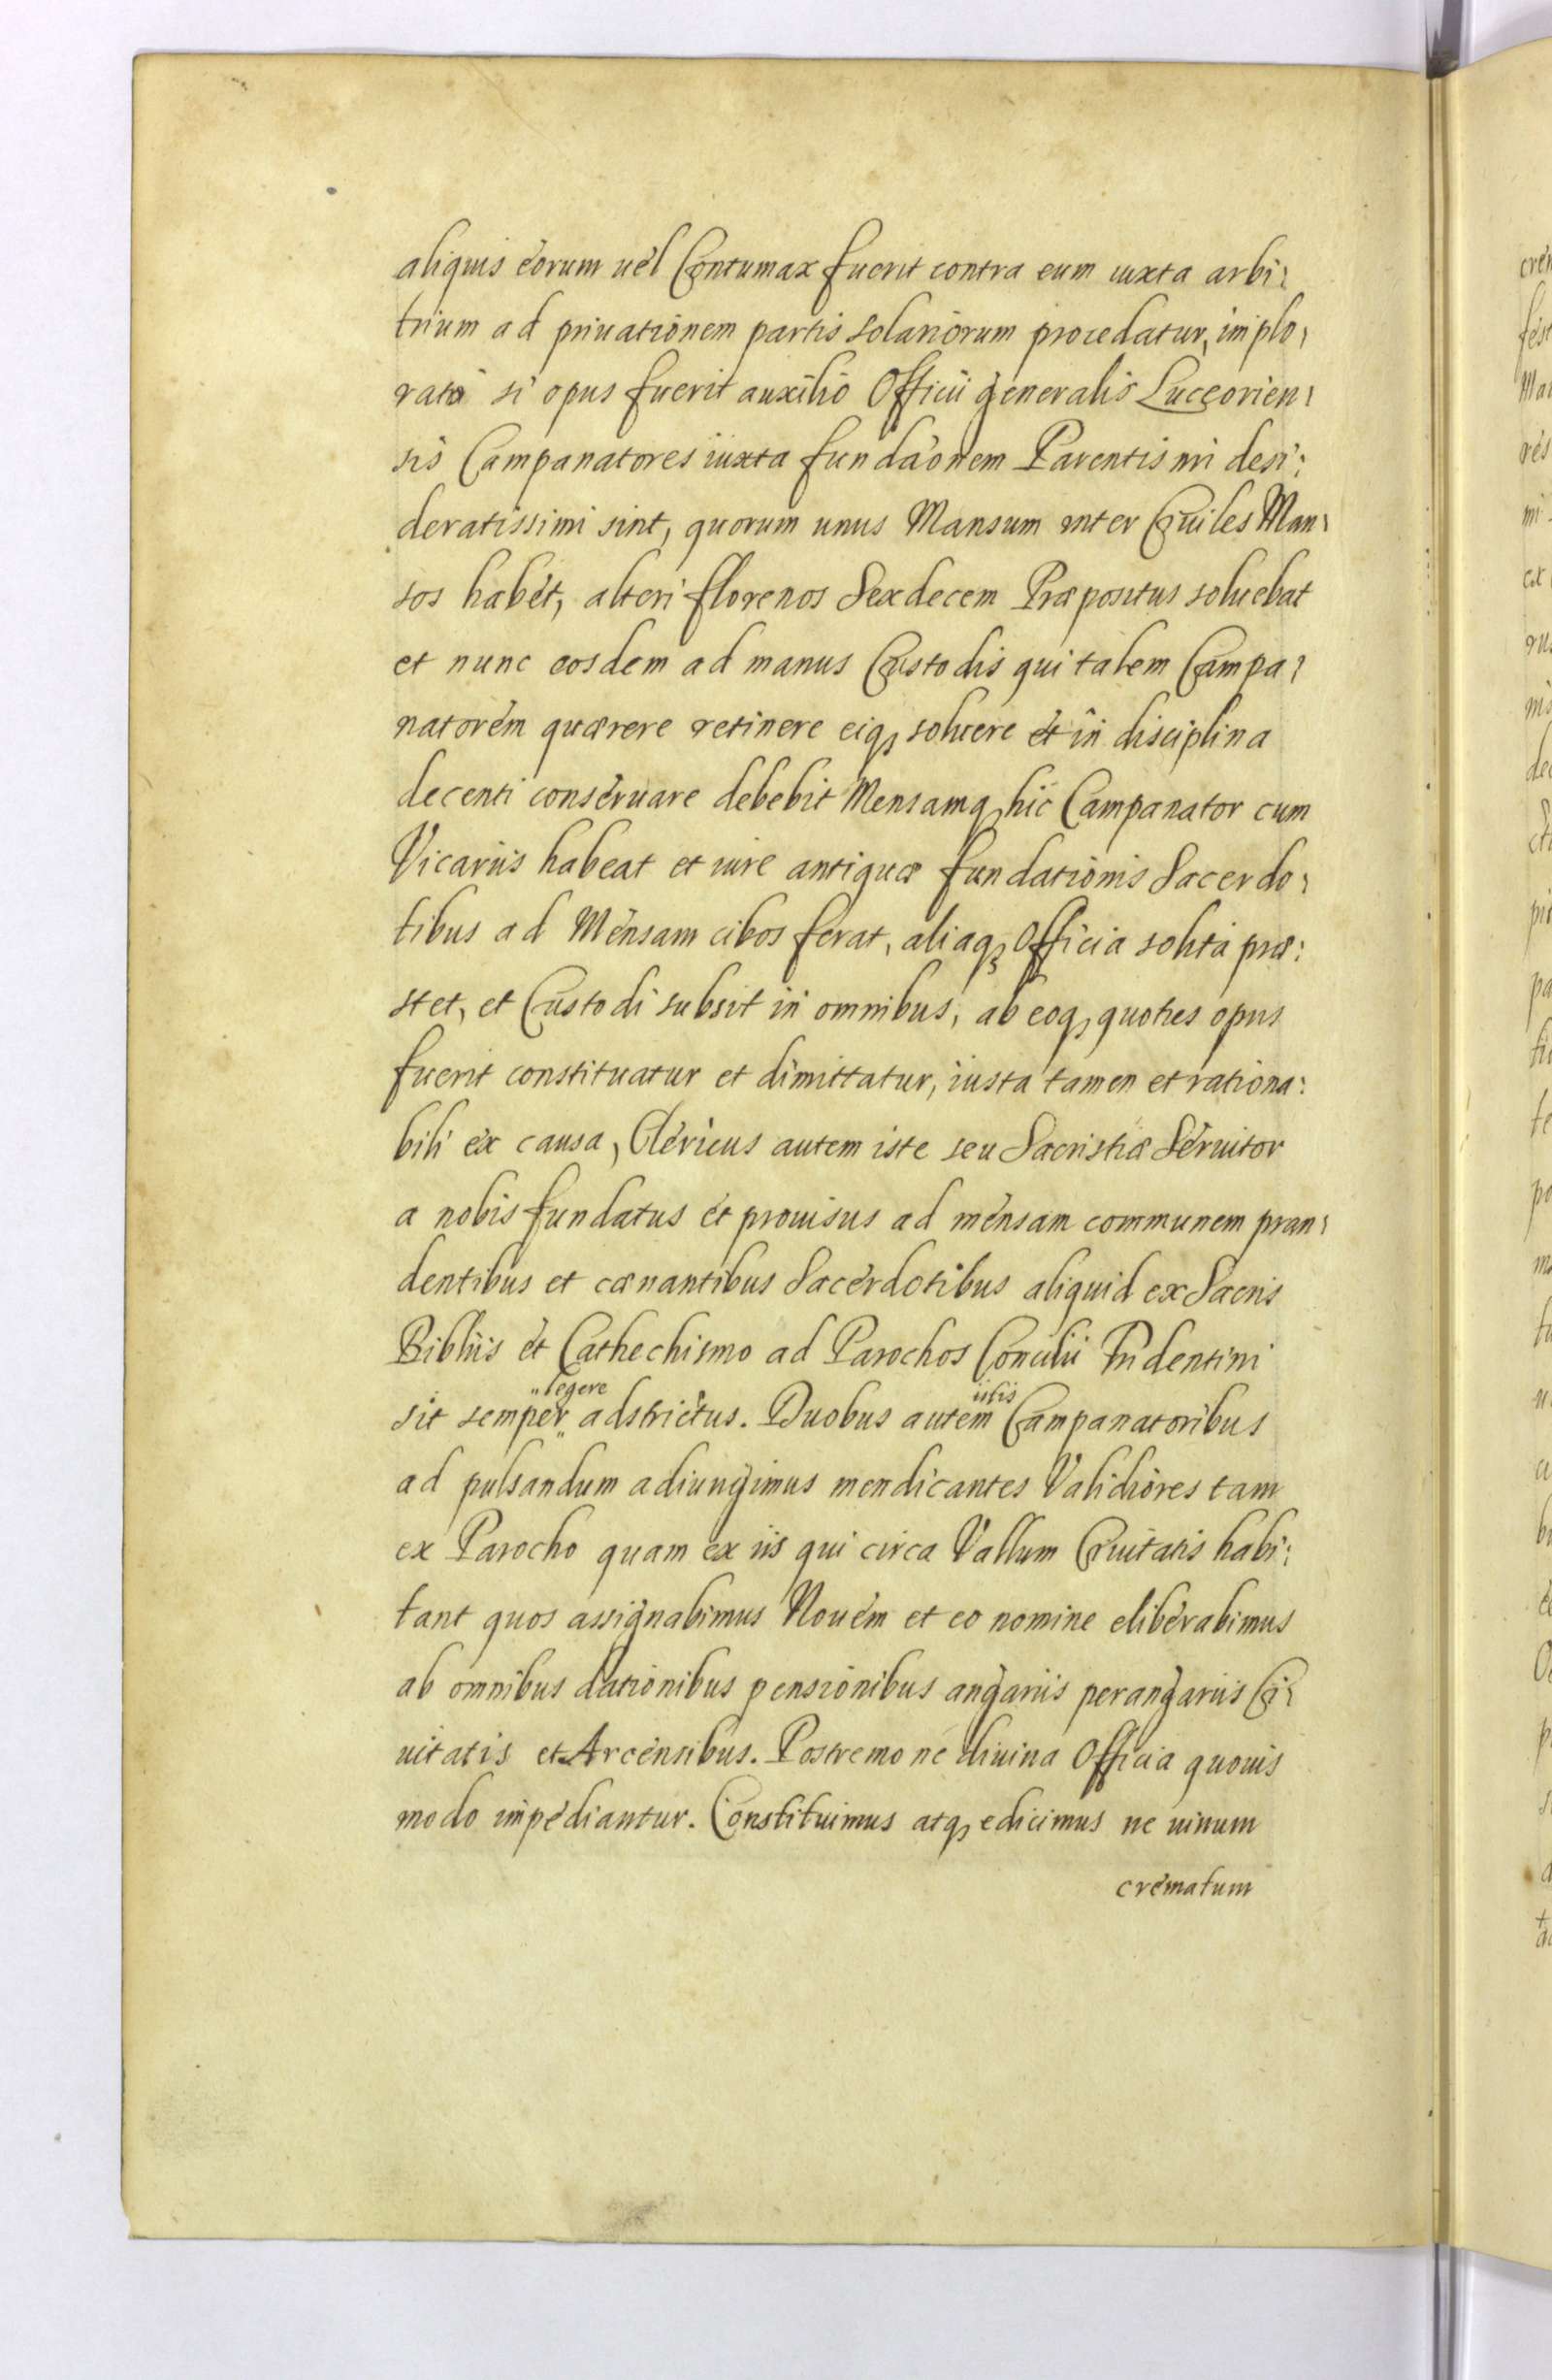 aliquis eorum uel Contumax fuerit contra eum iuxta arbi:
trium ad priuationem partis solariorum procedatur, implo,
rato si opus fuerit auxilio Officii generalis Luceorien,
sis Campanatores iuxta funda'onem Parentis mi desi:
deratissimi sint, quorum unus Mansum inter Ciuiles Man,
sos habet, alteri florenos Sexdecem Præpositus soluebat
et nunc eosdem ad manus Custodis qui talem Campa,
natorem quærere retinere eiq, soluere et in disciplina
decenti conseruare debebit Mensamq, hic Campanator cum
Vicariis habeat et iure antiquæ fundationis Sacerdo,
tibus ad Mensam cibos ferat, aliaq, Officia solita præ:
stet, et Custodi subsit in omnibus, ab eoq, quoties opus
fuerit constituatur et dimittatur, iusta tamen et rationa:
bili ex causa, Clericus autem iste seu Sacristiæ Seruitor
a nobis fundatus et prouisus ad mensam communem pran,
dentibus et cænantibus Sacerdotibus aliquid ex Sacris
Bibliis et Cathechismo ad Parochos Concilii Tridentini
sit semper legere adstrictus. Duobus autem iisis Campanatoribus
ad pulsandum adiungimus mendicantes Validiores tam
ex Parocho quam ex iis qui circa Vallum Ciuitatis habi:
tant quos assignabimus Nouem et eo nomine eliberabimus
ab omnibus dationibus pensionibus angariis perangariis Ci,
uitatis et Arcensibus. Postremo ne diuina Officia quouis
modo impediantur. Constituimus atq, edicimus ne uinum
crematum